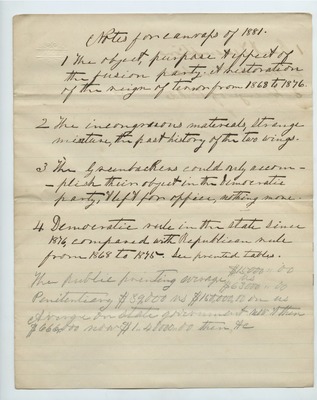 Notes for canvass of 1881.
1 The object, purpose & effect of
the fusion party. A restoration
of the reign of terror from 1868 to 1876.
2 The incongruous materials, strange
mixture, the past history of the two wings.
3 The Greenbackers could only accom-
-plish their object in the Democratic
party, & left for office, nothing more.
4 Democratic rule in the state since
1876, compared with Republican rule
from 1868 to 1875. See printed tables.
The public printing average $
Penitentiary $
on state government
now then, &c